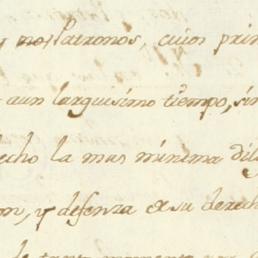 y nos Patronos, cuios prin
aun larguesimo tiempo, sin
echo la mas minima dilig
on, y defenza de su derecho